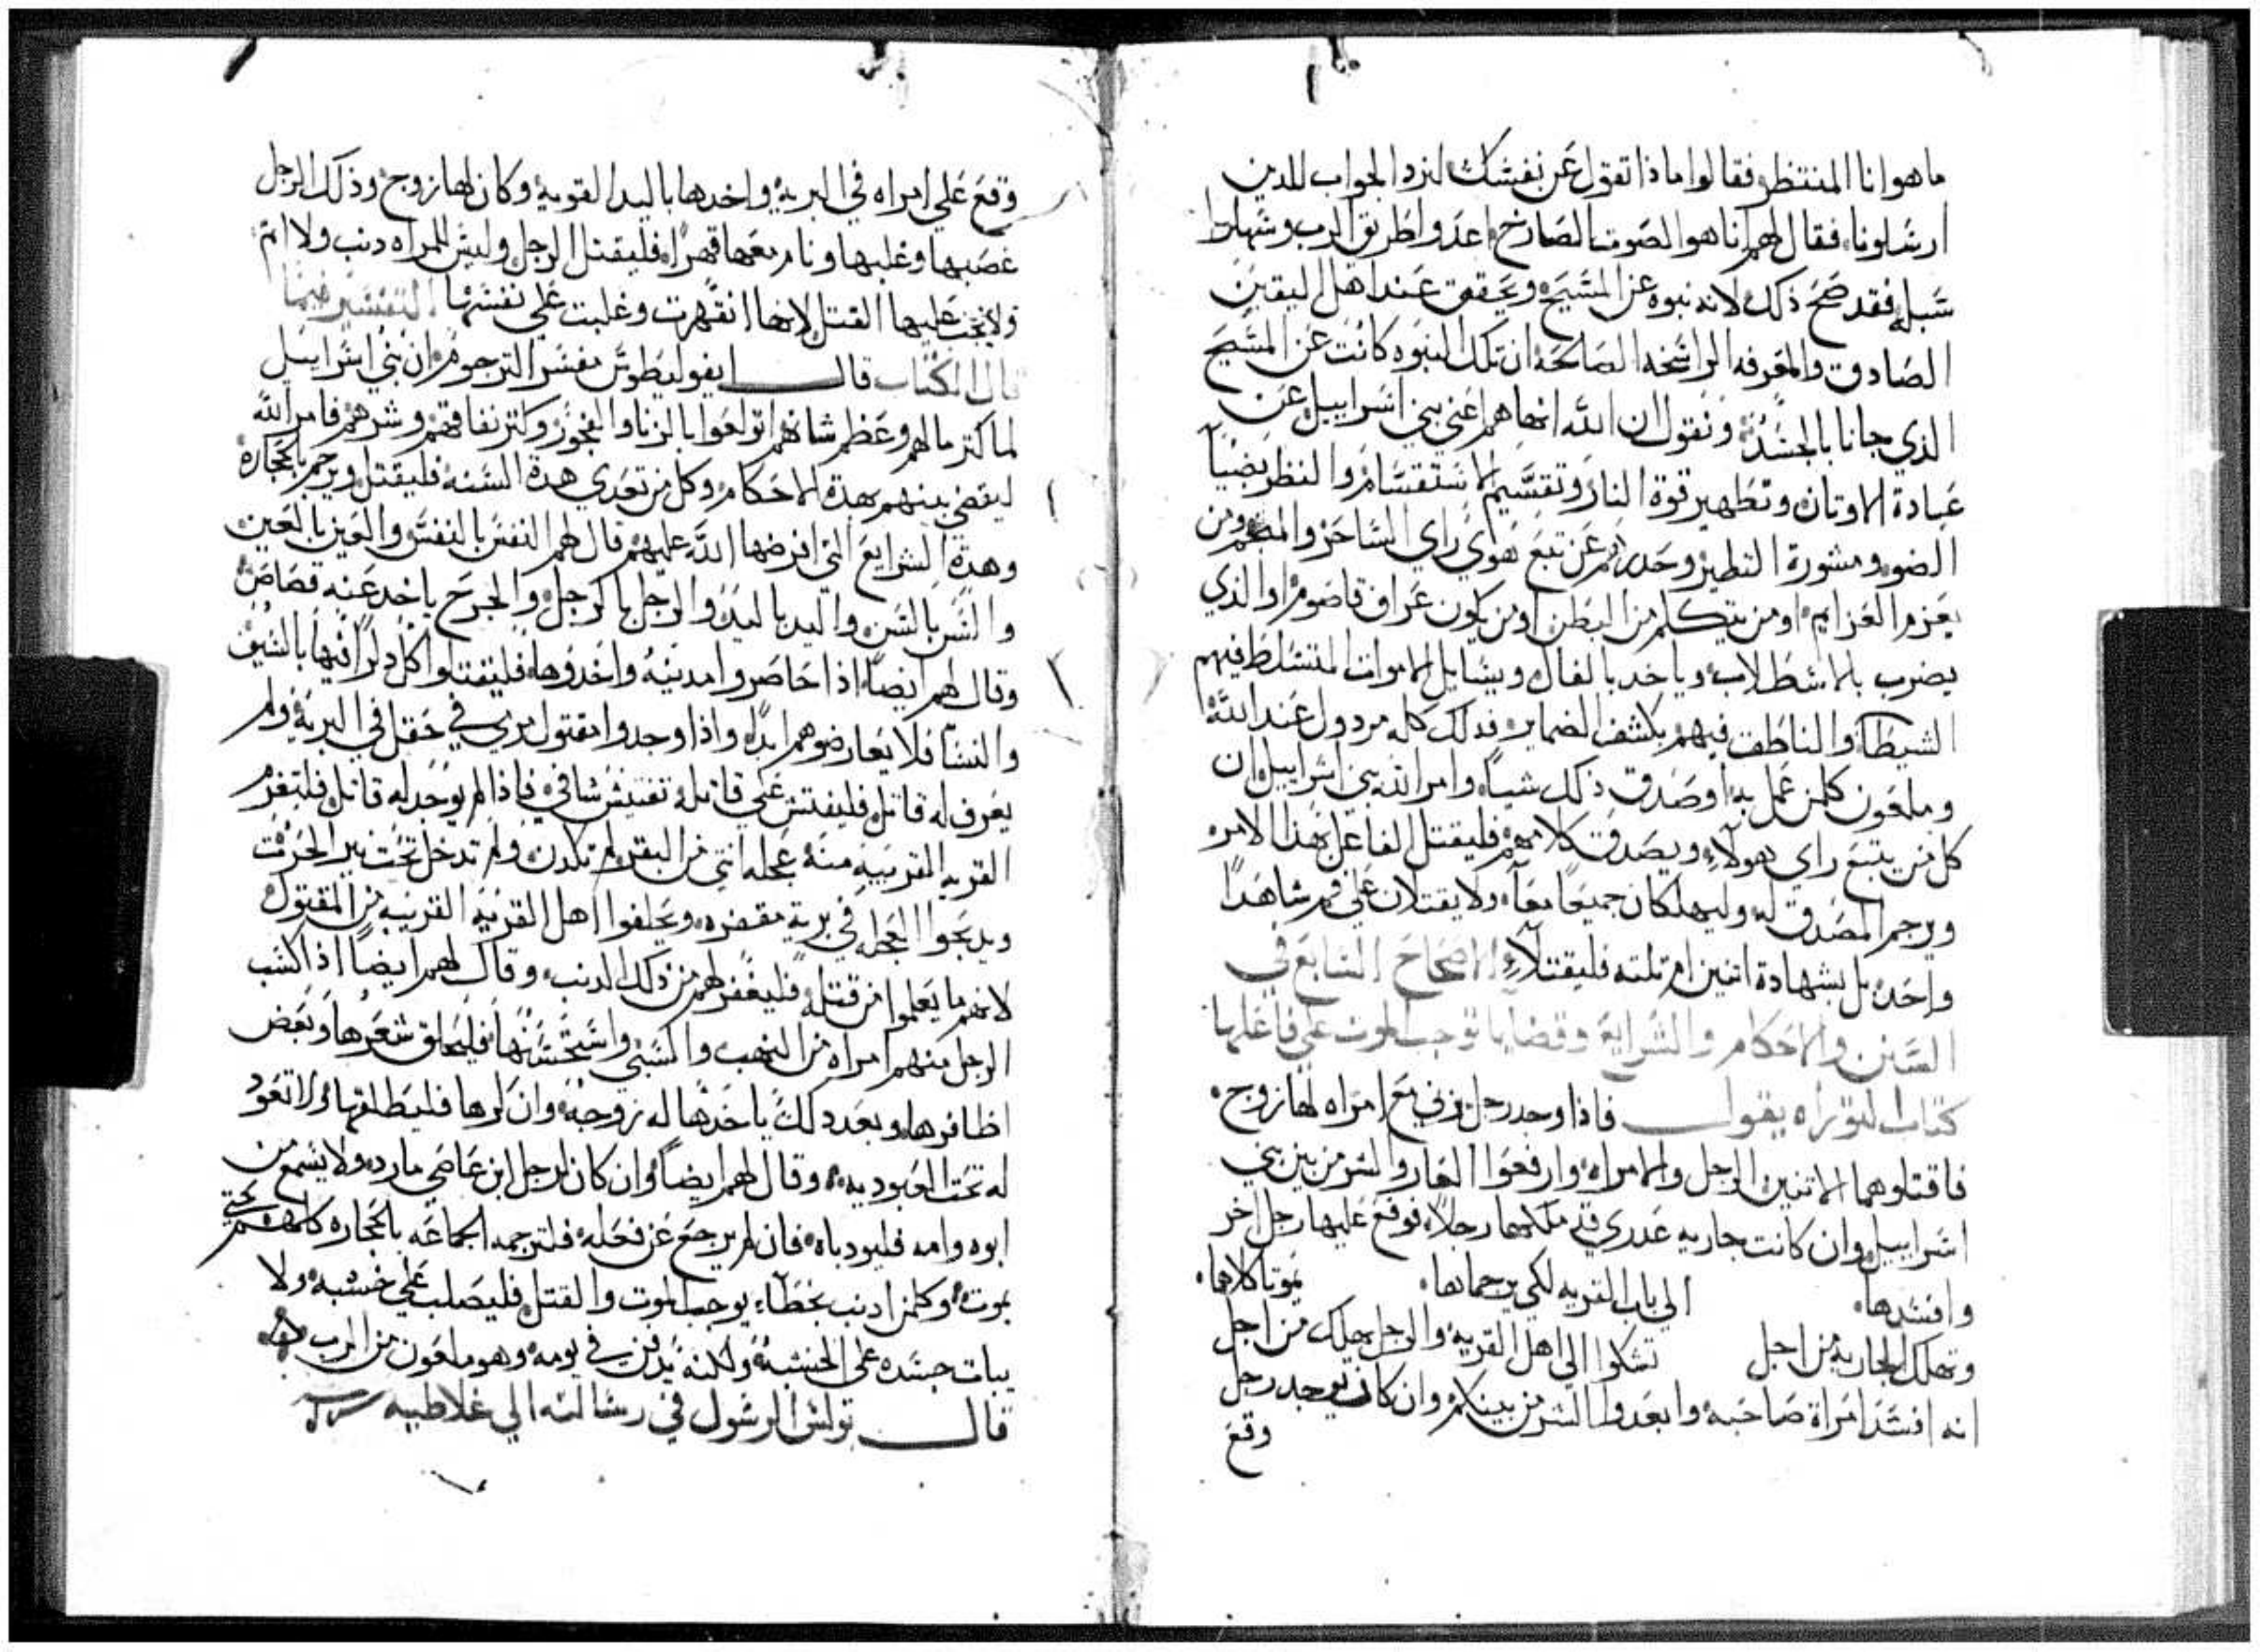 ما هو انا المنتظر فقالوا ماذا تقول عن نفسك لنرد الجواب للدين
ارسلونا، فقال لهم انا هو الصوت الصارخ اعدوا طريق الرب وسهلوا
سبله، فقد صح ذلك لانه نبوه عن المسيح ويحقق عند اهل اليقين
الصادق والمعرفه الراسخه الصالحه ان تلك النبوه كانت عن المسيح
الذي جانا بالجسد ونقول ان الله انهاهم اعني بني اسراييل عن
عبادة الاوتان وتطهير قوة النار وتقسيم الاستقسام والنظر بضيآ
الضوء ومشورة التطير وحدرهم عن تبع هواي راي الساحر والمنجم ومن
يعزم العزايم او من يتكلم من البطن او من يكون عراف او الذي
يضرب بالاسطرلاب وياخد بالفال ويسايل الاموات المتسلط فيهم
الشيطان والناطق فيهم بكشف الضماير فدلك كله مردول عند الله
وملعون كلمن عمل به او صدق ذلك شياً، وامر الله بني اسراييل ان
كل من يتبع راي هولآء ويصدق كلامهم فليقتل الفاعل لهذا الامر
ويرجم المصدق له وليهلكان جميعاً معاً، ولا يقتلان علي فم شاهداً
واحد بل بشهادة اتنين ام تلته فليقتلآء الاصحاح السابع في
السنن والاحكام والشرايع وقضايا توجب الموت علي فاعلها
كتاب التوراه يقول فاذا وجد رجل زني مع امراه لها زوج
فاقتلوهما الاتنين الرجل والامراه وارفعوا العار والشر من بين بني
اسراييل وان كانت جاريه عدري قد ملكها رجلاً، فوقع عليها رجل اخر
وافسدها، الي باب القريه لكي يرجماها، يموتا كلاهما،
وتهلك الجاريه من اجل تشكوا الي اهل القريه والرجل يهلك من اجل
انه افسد امراة صاحبه وابعدوا الشر من بينكم وان كان يوجد رجل
وقع
وقع علي امراه في البريه واخدها باليد القويه وكان لها زوج وذلك الرجل
غصبها وغلبها ونام معها قهراً، فليقتل الرجل وليس للمراه دنب ولا اتم
ولا يجب عليها القتل لانها انقهرت وغلبت علي نفسها التفسير فيما
قال الكتاب قال ايفوليطوس مفسر الترجوم ان بني اسراييل
لما كتر مالهم وعظم شانهم اتولعوا بالزنا والفجور وكتر نفاقهم وشرهم فامر الله
ليقضي بينهم بهدة الاحكام وكل من تعدي هدة السنه فليقتل ويرجم بالحجارة
وهدة الشرايع التي افرضها الله عليهم قال لهم النفس بالنفس والعين بالعين
والسن بالسن واليد باليد والرجل بالرجل والجرح ياخد عنه قصاص
وقال لهم ايضاً، اذا حاصروا مدينه واخدوها، فليقتلوا كل دكراً فيها بالسيف
والنسآ فلا يعارضوهم ابداً، واذا وجدوا مقتول مرمي في حقل في البريه ولم
يعرف له قاتل، فليفتش علي قاتله تفتيش شافي فاذا لم يوجد له قاتل فلتغرم
القريه القريبه منه عجله انتي من البقر لم تلدن ولم تدخل تحت نير الحرث
ويدبحوا العجله في برية مقفره، ويحلفوا اهل القريه القريبه من المقتول
لانهم ما يعلموا من قتله، فليغفر لهم من ذلك الدنب، وقال لهم ايضاً اذ اكسب
الرجل منهم امراه من النهب والسبي واستحسنها فليحلق شعرها وبعض
اظافرها، وبعد دلك ياخدها له زوجه، وان كرها فليطلقها، ولا تعود
له تحت العبوديه، وقال لهم ايضاً، وان كان لرجل ابن عاصي مارد، ولا يسمع من
ابوه وامه فليودباه، فان لم يرجع عن فعله، فلترجمه الجماعه بالحجاره كلهم حتي
يموت، وكلمن ادنب بخطآء يوجب الموت والقتل، فليصلب علي خشبه، ولا
يبات جسده علي الخشبه ولكنه يدفن في يومه، وهو ملعون من الرب
قال بولس الرسول في رسالته الي غلاطيه